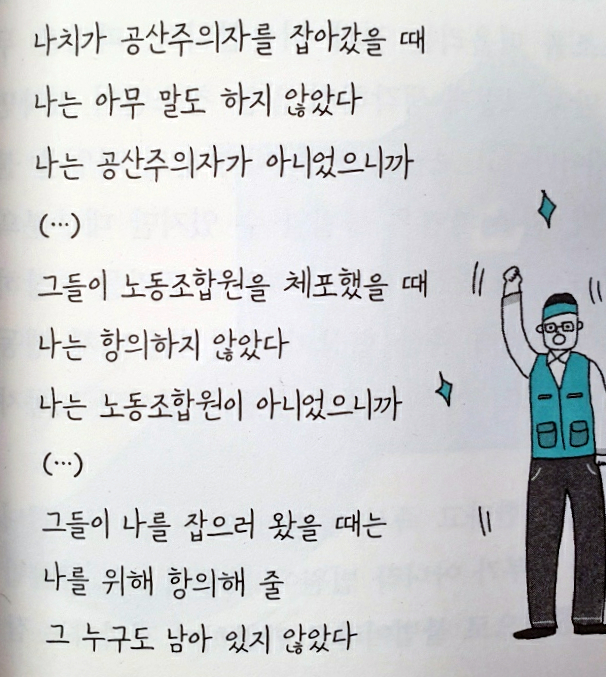 나치가 공산주의자를 잡아갔을 때
나는 아무 말도 하지 않았다
나는 공산주의자가 아니었으니까
(…)
그들이 노동조합원을 체포했을 때
나는 항의하지 않았다
나는 노동조합원이 아니었으니까
(…)
그들이 나를 잡으러 왔을 때는
나를 위해 항의해 줄
그 누구도 남아 있지 않았다